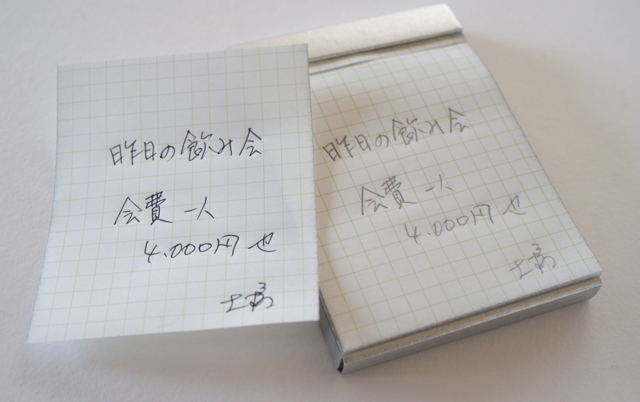 昨日の飲み会
会費 一人
4.000円也
昨日の飲み会
会費 一人
4.000円也